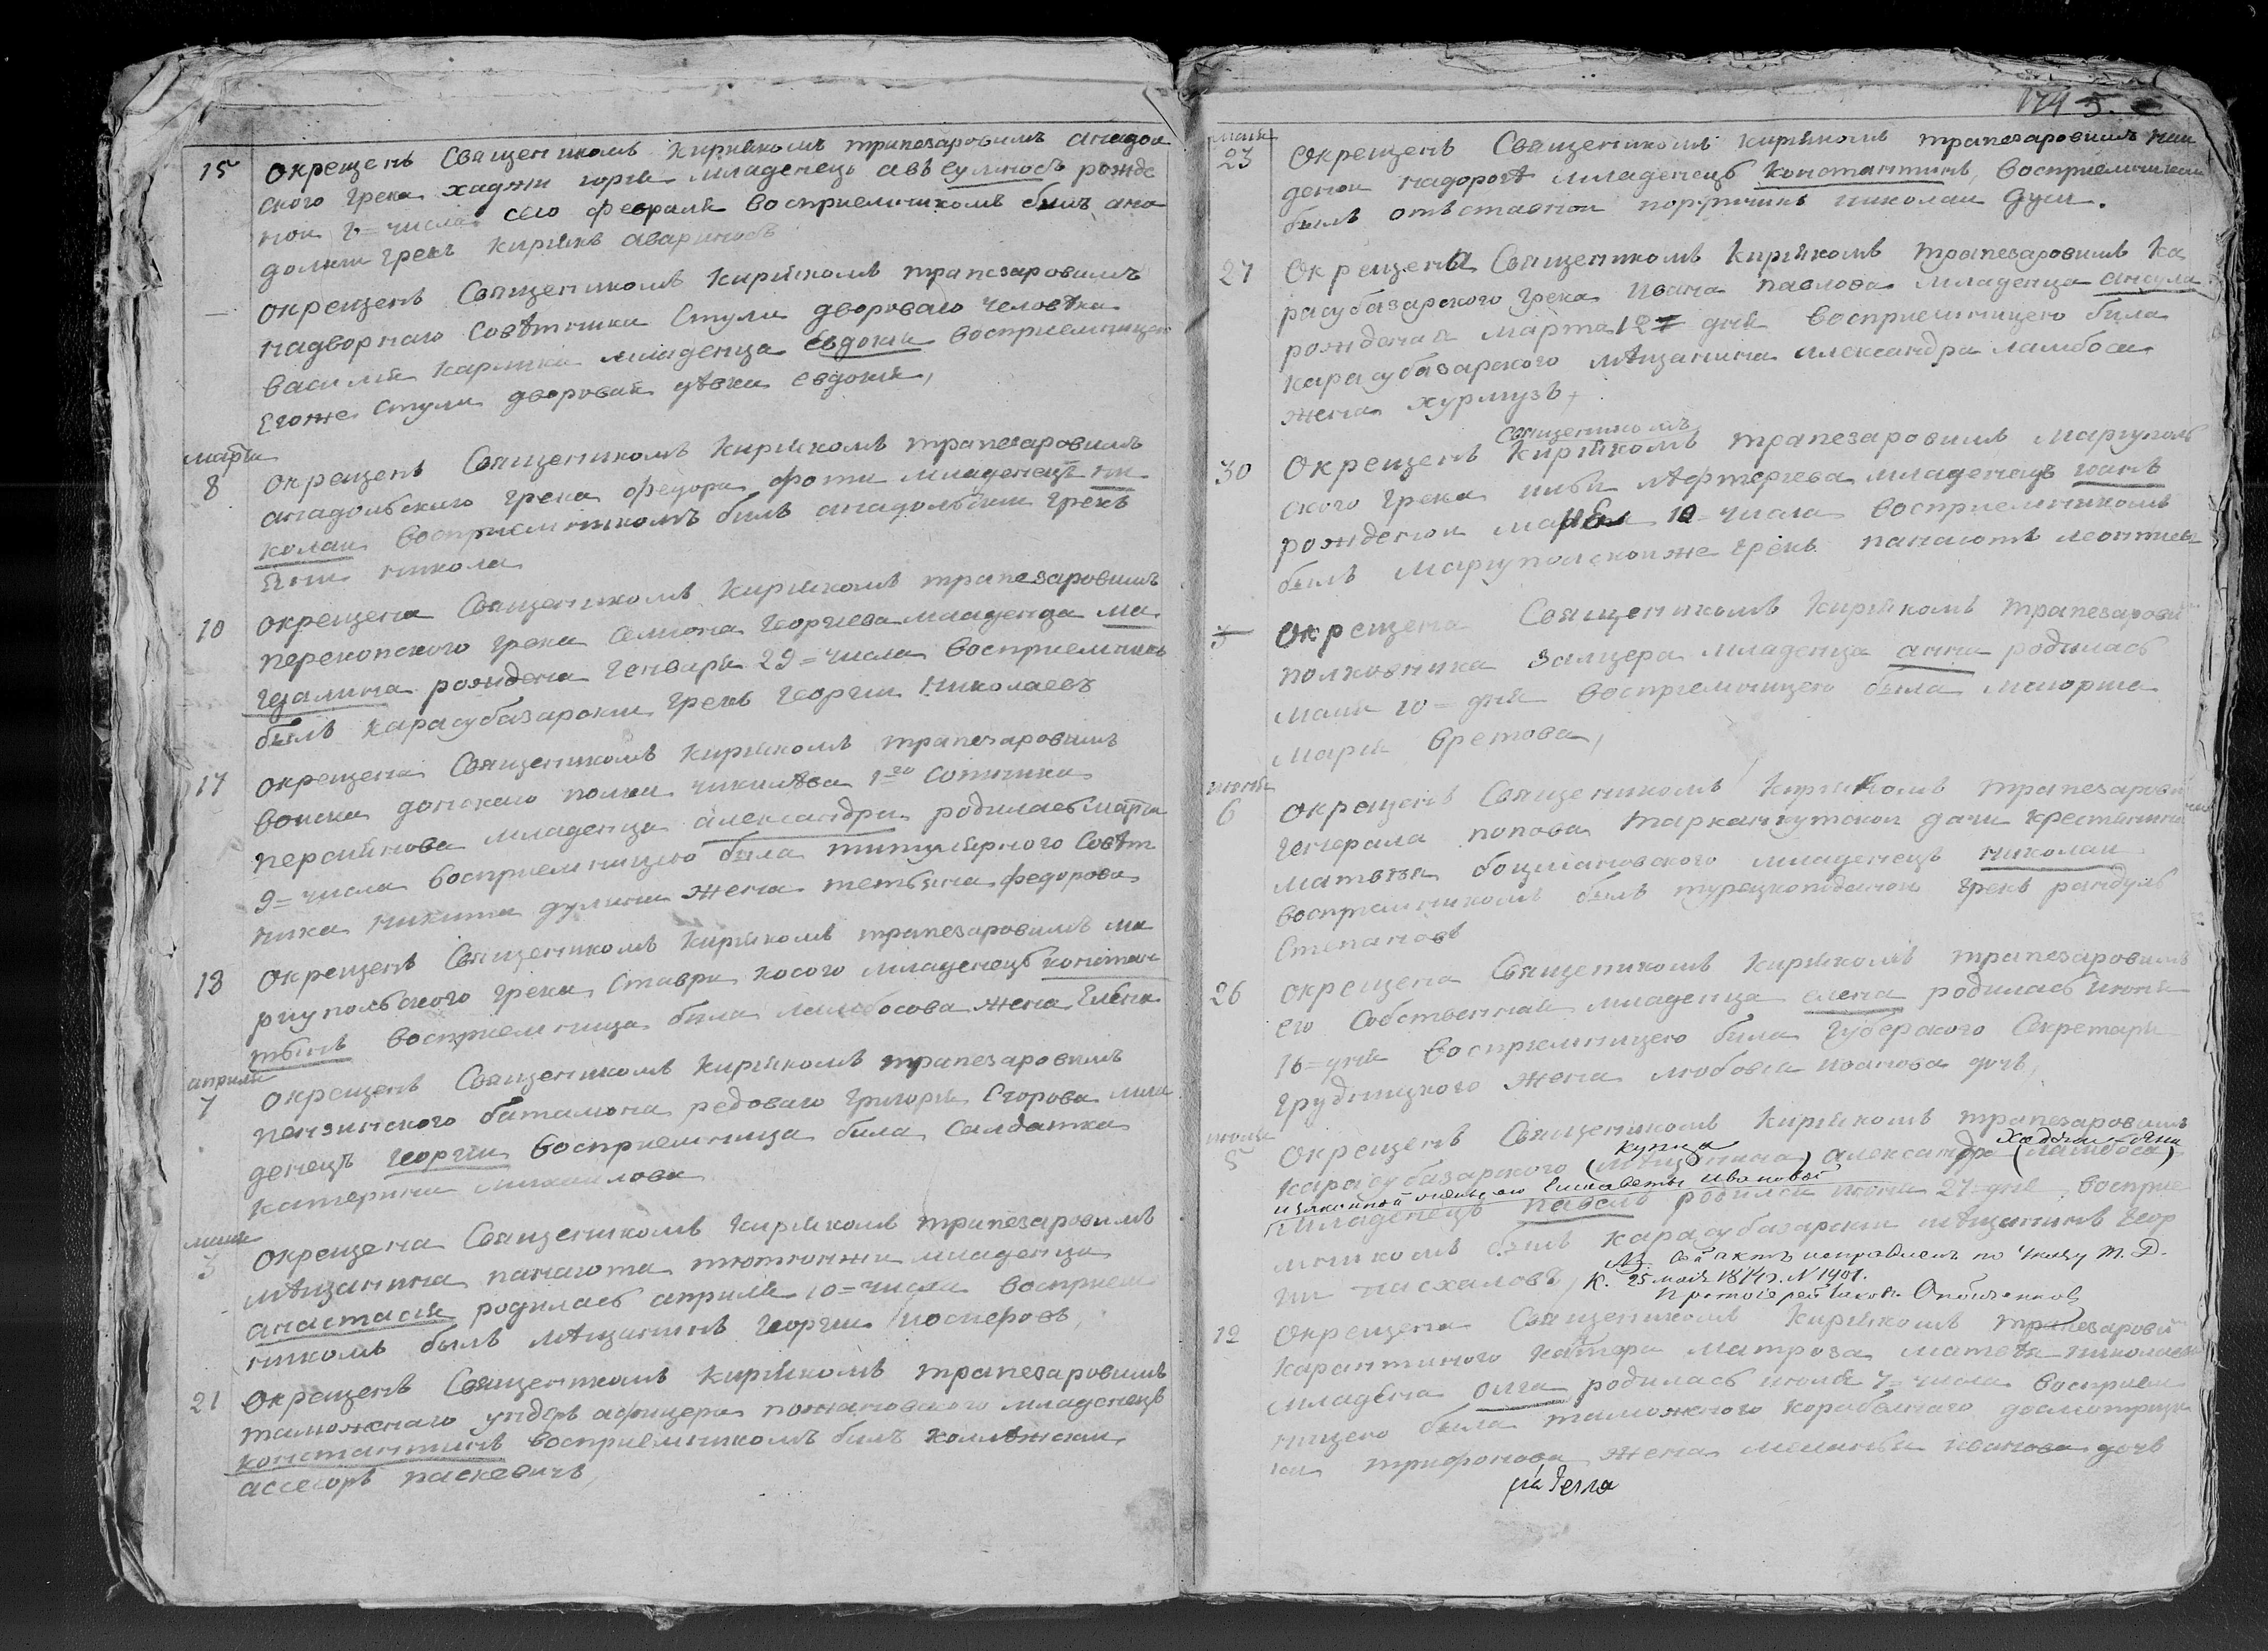 15 окрещенъ Священикомъ Кирїякомъ трапезаровимъ анадол
ского грека хаджи горги младенецъ рожде
нои числа сего февраля восприемникомъ былъ ана
долски грекъ Кирїякъ
— окрещенъ Священикомъ Кирїякомъ трапезаровимъ
надворнаго совѣтника Стули двороваго человѣка
василия младенца евдокия восприемницею
Егоже Стули дворовая дѣвка евдокия,
марта
8 окрещенъ Священикомъ Кирїякомъ трапезаровимъ
анадольскаго грека федора фоти младенецъ ни
колаи восприемникомъ билъ анадольски грекъ
Яни никола
10 окрещена Священикомъ Кирїякомъ трапезаровимъ
перекопского грека Семиона Георгиева младенца ма
гдалина рождена Генваря 29 = числа восприемникъ
былъ карасубазарски грекъ Георги Николаевъ
17 окрещена Священикомъ Кирїякомъ трапезаровимъ
воиска донскаго полка 1го Сотника
персиянова младенца александра родилась марта
9 = числа восприемницею была титулярного Совѣт
ника никити дулина жена Федорова
18 окрещенъ Священикомъ Кирїякомъ трапезаровимъ ма
риупольского грека Ставри косого младенецъ констан
тынъ восприемница била ламбосова жена Елена
априля
7 окрещенъ Священикомъ Кирїякомъ трапезаровимъ
пензинского баталиона редоваго григория Егорова мла
денецъ георги восприемница била Салдатка
катерина михаилова
маия
3 окрещена Священикомъ Кирїякомъ трапезаровимъ
мѣщанина панаиота младенца
анастасия родилась априля 10 = числа восприем
никомъ былъ мѣщанинъ георги иосифовъ,
21 окрещенъ Священикомъ Кирїякомъ трапезаровимъ
таможенаго ундеръ афицера младенецъ
константинъ восприемникомъ былъ колѣжски
ассесоръ паскевичъ,
174 5.
маия
23 Окрещенъ Священикомъ Кирїякомъ трапезаровимъ наи
денои надорогѣ младенецъ константинъ, восприемником
былъ отъставнои порутчикъ николаи Дуси.
27 Окрещена Священикомъ Кирїякомъ трапезаровимъ ка
расубазарского грека Ивана павлова младенца
рожденая марта дня восприемницею била
карасубазарского мѣщанина александра ламбоса
жена хурмузъ,
Священикомъ
30 Окрещенъ Кирїякомъ трапезаровимъ мариуполь
ского грека илии лѣфтергева младенецъ
рожденои 10 = числа восприемникомъ
былъ мариуполскои же грекъ панаиотъ леонтиев
3 Окрещена Священикомъ Кирїякомъ трапезарови
полковника младенца анна родилась
маия 10 = дня восприемницею была маиорша
мария
июня
6 окрещенъ Священикомъ Кирїякомъ трапезарови
Генерала попова тарханкутскои дачи крестянина
матвѣя боцмановского младенецъ николаи
восприемникомъ былъ турецкоподанои грекъ
Степановъ
26 окрещена Священикомъ Кирїякомъ трапезаровимъ
его собственная младенца елена родилась июня
16 = дня восприемницею била губерского Секретаря
грудницкого жена любовъ иванова дочъ,
июля
5 окрещенъ Священикомъ Кирїякомъ трапезаровимъ
купца хаджи Яни
карасубазарского (мѣщанина) александра (ламбоса)
и законной жены его Елисаветы Ивановой
младенецъ павелъ родился июня 27 = дня восприе
мникомъ былъ карасубазарски мѣщанинъ геор
ги пасхаловъ,
Сей актъ исправленъ по Указу Т. Д.
К. 25 мая N 1401.
Протоіерей
12 Окрещена Священикомъ Кирїякомъ трапезарови
карантиного катера матроза матвѣя николаева
младенца олга родилась июля 7 = числа восприем
ницею была таможеного корабелнаго досмотрщи
ка трифонова жена иванова дочъ